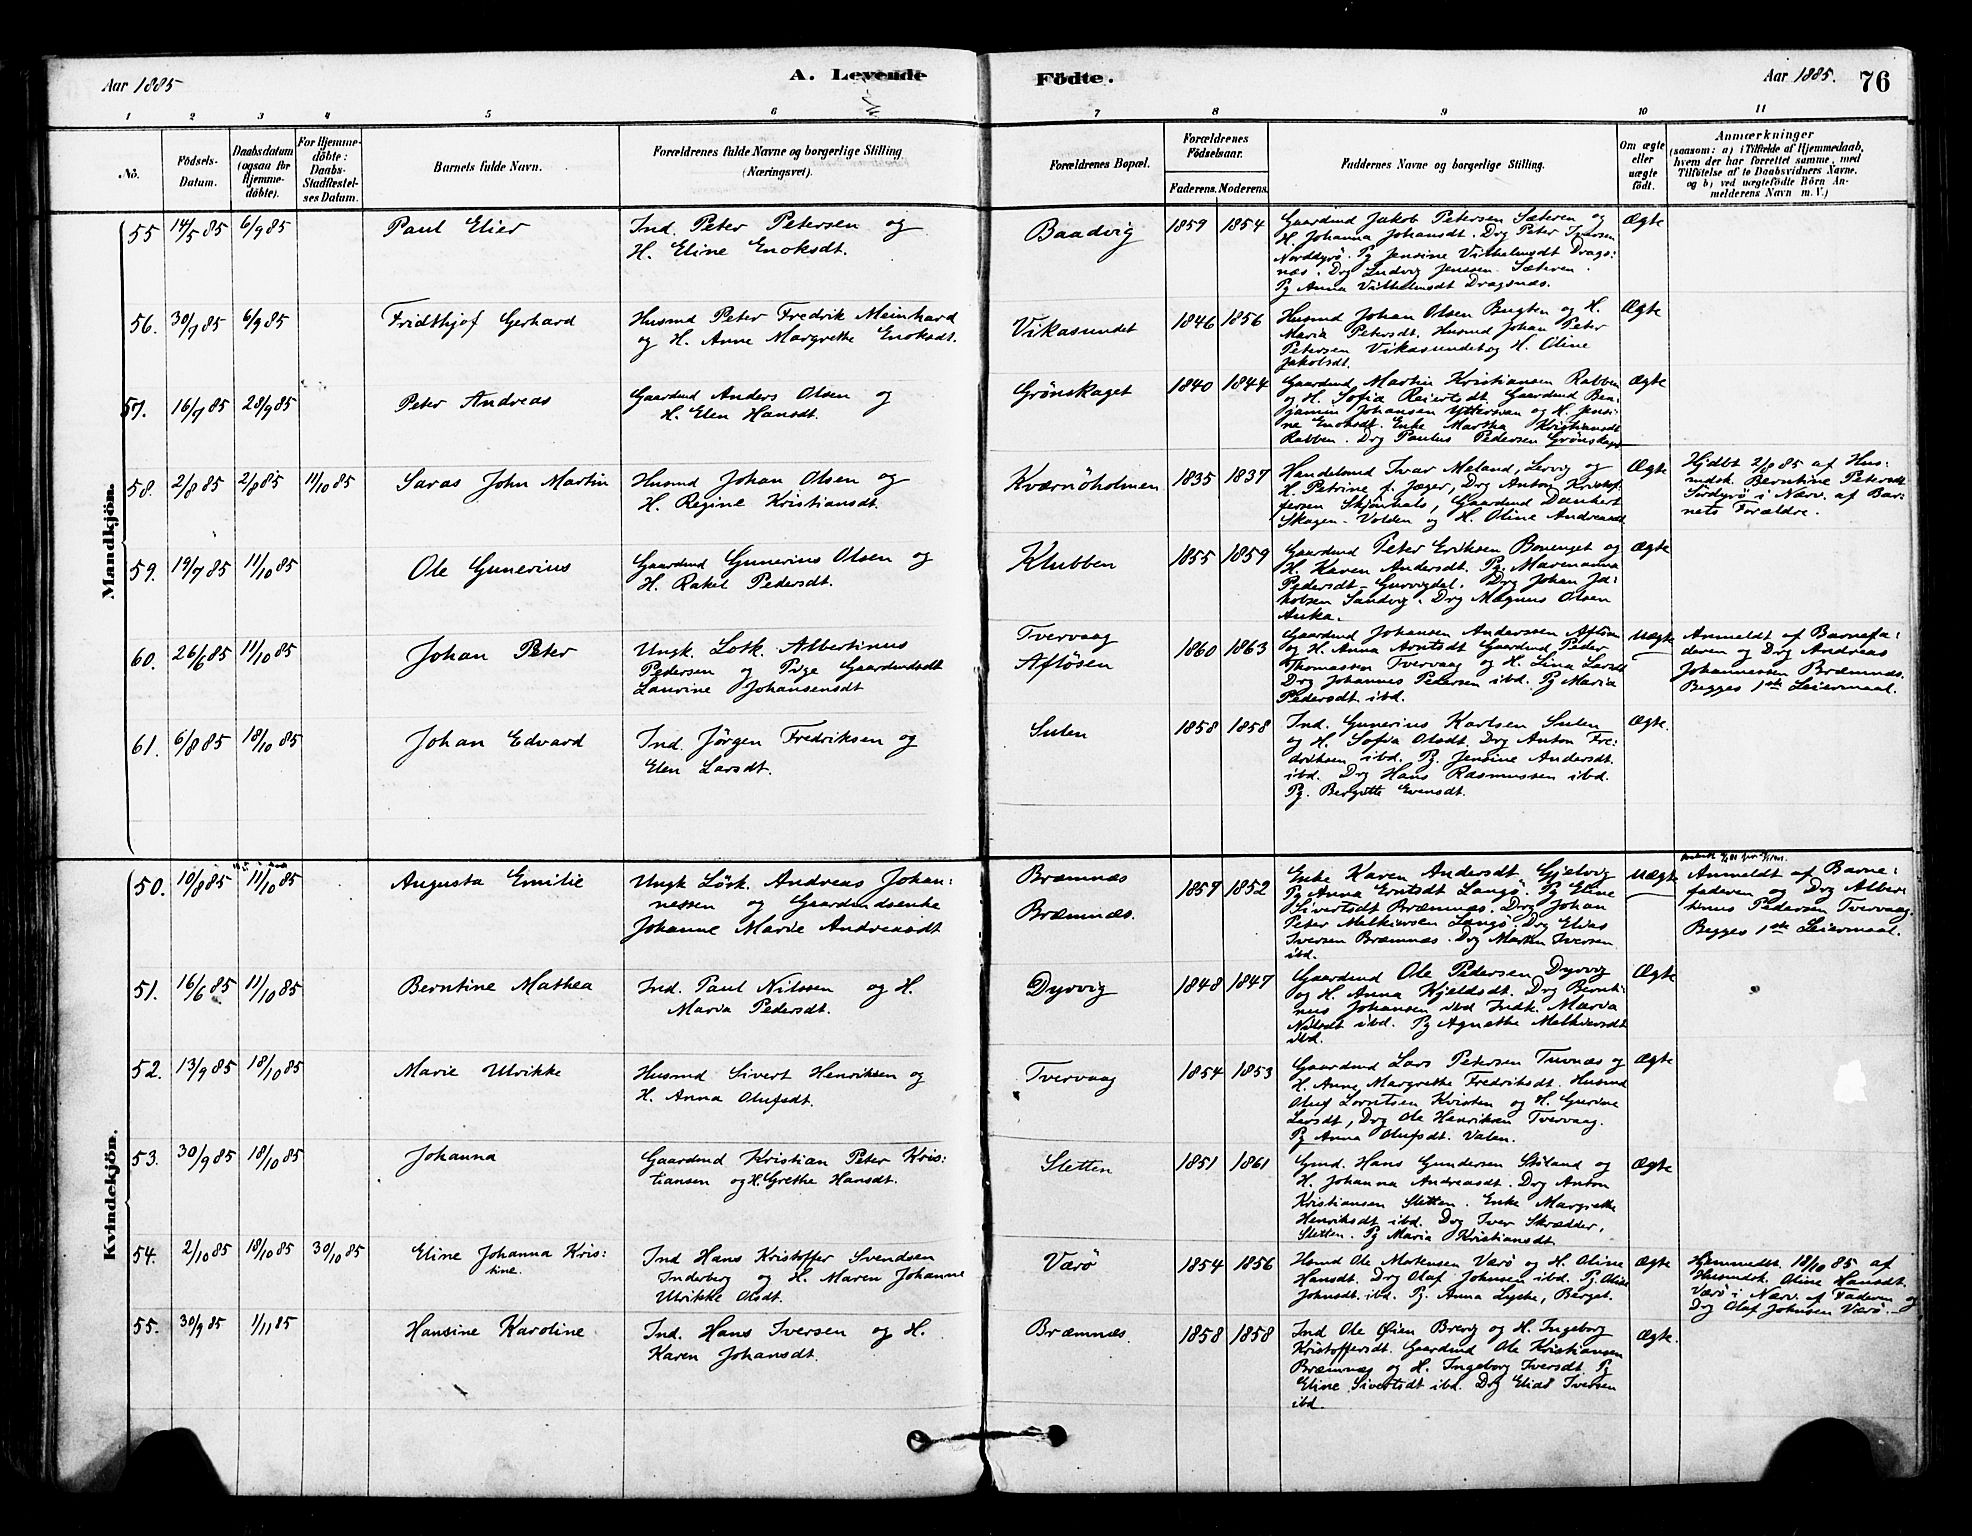 Aar 1885
A. Levende
Födte.
Aar 1885.
76
1 2 3 4 5 6 7 8 9 10 11
No.
Födsels-
Datum.
Daabsdatum
(ogsaa for
Hjemme-
döbte).
For Hjemme-
döbte:
Daabs-
Stadfæstel-
ses Datum.
Barnets fulde Navn.
Forældrenes fulde Navne og borgerlige Stilling
(Næringsvei).
Forældrenes Bopæl.
Forældrenes
Födselsaar.
Faderens. Moderens.
Faddernes Navne og borgerlige Stilling.
Om ægte
eller
uægte
födt.
Anmærkninger
(saasom: a) i Tilfælde af Hjemmedaab,
hvem der har forrettet samme, med
Tilföielse af to Daabsvidners Navne,
og b) ved uægtefödte Börn An-
melderens Navn m. V.)
Mandkjön.
55 14/5 85 6/9 85
Paul Elier
Ind. Peter Petersen og
H. Eline Enoksdt.
Baadvig
1859 1854
Gaardmd Jakob Petersen Sæteren og
H. Johanna Johansdt. Drg Peter Iversen
Norddyrø. Pg Jensine Vilhelmsdt Drags:
næs. Drg Ludvig Jenssen Sæteren.
Pg Anna Vilhelmsdt Dragsnæs.
Ægte
56. 30/7 85 6/9 85
Fridthjof Gerhard
Husmd Peter Fredrik Meinhard
og H. Anne Margrethe Enoksdt.
Vikasundet
1846 1856
Husmd Johan Olsen Bugten og H.
Maria Petersdt. Husmd Johan Peter
Petersen Vikasundet og H. Oline
Jakobsdt.
Ægte
57. 16/7 85 28/9 85
Peter Andreas
Gaardmd Anders Olsen og
H. Elen Hansdt.
Grønskaget
1840 1844
Gaardmd Martin Kristiansen Rabben
og H. Sofia Reiertsdt. Gaardmd Ben
jamin Johansen og H. Jensi
ne Enoksdt. Enke Martha Kristiansdt
Rabben. Drg Paulus Pedersen Grønskaget
Ægte
58. 2/8 85 2/8 85 11/10 85
Saras John Martin
Husmd Johan Olsen og
H. Regine Kristiansdt.
Kværnøholmen
1835 1837
Handelsmd Ivar Meland, Lervig og
H. Petrine f. Jæger, Drg Anton Kristof
fersen Skjønhals, Gaardmd Dankert
Skagen-Volden og H. Oline Andreasdt
Ægte
Hjdbt 2/8 85 af Hus:
mdsk. Berntine Petersdt
Sørdyrø i Nærv. af Bar:
nets Forældre.
59. 19/7 85 11/10 85
Ole Gunerius
Gaardmd Gunerius Olsen og
H. Rakel Pedersdt.
Klubben
1855 1859
Gaardmd Peter Eriksen Bonenget og
H. Karen Andersdt. Pg. Marenanna
Pedersdt - Gurvigdal. Drg Johan Ja:
kobsen Sandvig. Drg Magnus Olsen
Anka.
Ægte
60. 26/6 85 11/10 85
Johan Peter
Ungk. Losk. Albertinus
Pedersen og Pige Gaardmdsdt
Laurine Johansensdt
Tvervaag
Afløsen
1860 1863
Gaardmd Johansen Anderssen Afløsn
og H. Anna Arntsdt Gaardmd Peder
Thomassen Tvervaag og H. Lina Larsdt
Drg Johannes Pedersen ibd. Pg Maria
Pedersdt ibd.
Uægte
Anmeldt af Barnefa:
deren og Drg Andreas
Johannessen Bræmnæs.
Begges 1ste Leiermaal.
61. 6/8 85 18/10 85
Johan Edvard
Ind. Jørgen Fredriksen og
Elen Larsdt.
Sulen
1858 1858
Ind. Gunerius Karlsen Sulen
og H. Sofia Olsdt. Drg Anton Fre:
driksen ibd. Pg. Jensine Andersdt.
ibd. Drg Hans Rasmussen ibd.
Pg. Bergitte Evensdt.
Ægte.
Kvindekjön.
50. 10/8 85 11/10 85
Augusta Emilie
Ungk Lösk. Andreas Johan:
nessen og Gaardmdsenke
Johanne Marie Andreasdt
Bræmnæs
Bræmnæs.
1857 1852
Enke Karen Andersdt Gjelvig
Pg Anna Erntsdt Langø. Pg Eline
Sivertsdt Bræmnæs. Drg Johan
Peter Melkiorsen Langø. Drg Elias
Iversen Bræmnæs. Drg Martin Iversen
ibd.
Uægte
Anmeldt af Barne:
faderen og Drg Alber:
tinus Pedersen Tvervaag.
Begges 1ste Leiermaal.
51. 16/6 85 11/10 85
Berntine Mathea
Ind. Paul Nilssen og H.
Maria Pedersdt.
Dyrvig
1848 1847
Gaardmd Ole Pedersen Dyrvig
og H. Anna Kjeldsdt. Drg Bernti:
nus Johansen ibd Indk. Maria
Nilsdt ibd. Pg Agnethe Melkiorsdt
ibd.
Ægte
52. 13/9 85 18/10 85
Marie Ulrikke
Husmd Sivert Henriksen og
H. Anna Olufsdt.
Tvervaag
1854 1853
Gaardmd Lars Petersen Tuvnæs og
H. Anne Margrethe Fredriksdt. Husmd
Oluf Lorntsen Kvisten og H. Gurine
Larsdt, Drg Ole Henriksen Tvervaag.
Pg Anna Olufsdt. Valen.
Ægte
53. 30/9 85 18/10 85
Johanna
Gaardmd Kristian Peter Kris:
tiansen og H. Grethe Hansdt.
Sletten
1851 1861
Gmd. Hans Gundersen Støland og
H. Johanna Andreasdt. Drg Anton
Kristiansen Sletten. Enke Margrethe
Henriksdt ibd. Drg Iver Skrædder,
Sletten. Pg Maria Kristiansdt
Ægte
54. 2/10 85 18/10 85 30/10 85
Eline Johanna Kris:
tine.
Ind Hans Kristoffer Svendsen
Inderberg og H. Maren Johanne
Ulrikke Olsdt.
Værø
1854 1856
Husmd Ole Mortensen Værø og H. Oline
Hansdt. Drg Olaf Johnsen ibd. Pg Oline
Johnsdt. ibd. Pg. Anna Lyche, Berget.
Ægte
Hjemmedt. 18/10 85 af
Husmdsk. Oline Hansdt.
Værø i Nærv. af Faderen og
Drg Olaf Johnsen Værø.
55. 30/9 85 1/11 85
Hansine Karoline
Ind. Hans Iversen og H.
Karen Johansdt.
Bræmnæs.
1858 1858
Ind Ole Øien Brevig og H. Ingeborg
Kristoffersdt. Gaardmd Ole Kristiansen
Bræmnæs og H. Ingeborg Iversdt. Pg
Eline Sivertsdt ibd. Drg Elias Iversen
ibd.
Ægte.